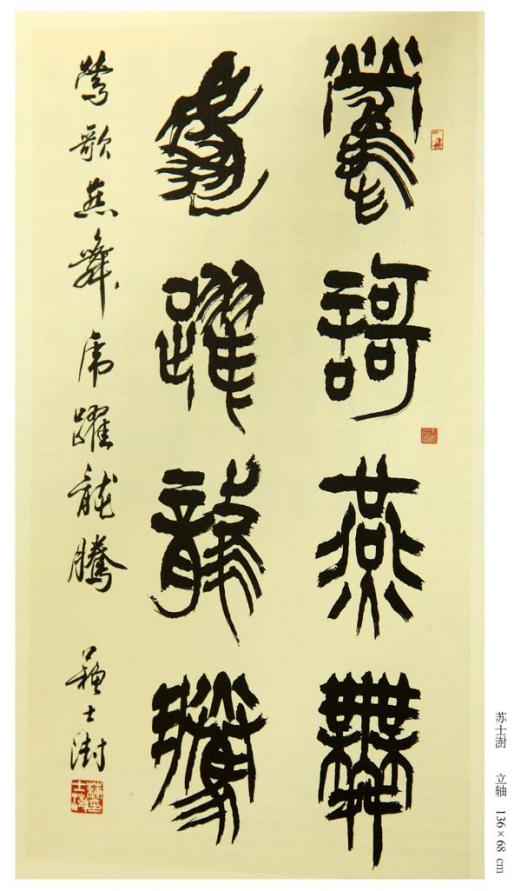 鶯謌燕舞
虎躍龍騰
鶯歌燕舞虎躍龍騰 蘇士澍
苏士澍 立轴 136×68 cm